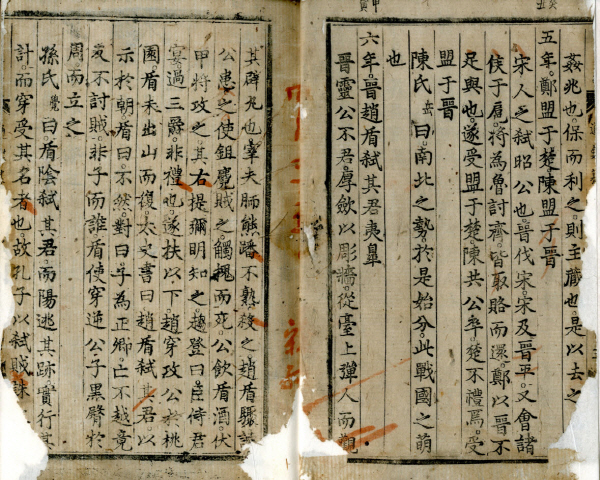 姦兆也保而利之則主藏也是以去之
五年鄭盟于楚陳盟于晉
宋人之弑昭公也晉伐宋宋及晉平又會諸
侯于扈將為魯討齊皆取賂而還鄭以晉不
足與也遂受盟于楚陳共公卒楚不禮焉受
盟于晉
陳氏曰南北之勢於是始分此戰國之萌
也
六年晉趙盾弑其君夷皐
晉靈公不君厚歛以彫牆從臺上彈人而觀
其辟兆也宰夫胹熊蹯不熟殺之趙盾驟
公患之使鉏麑賊之觸槐而死公飲盾酒伏
甲將攻之其右提彌明知之趨登曰臣侍君
宴過三爵非禮也遂扶以下趙穿攻公於桃
園盾未出山而復太史書曰趙盾弑其君以
示於朝盾曰不然對曰子為正卿亡不越竟
反不討賊非子而誰盾使穿逆公子黑臀於
周而立之
孫氏曰盾陰弑其君而陽逃其跡實行其
計而穿受其名者也故孔子以弑賊誅